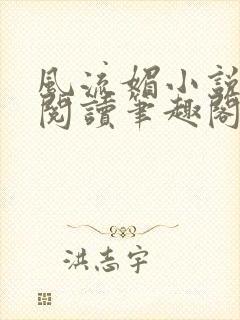 風流媚小說
閱讀筆趣閣
洪志宇